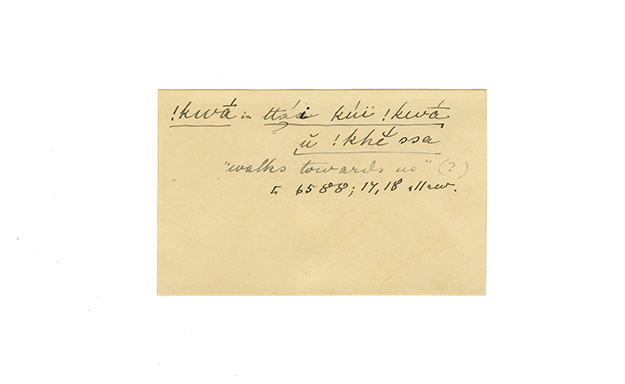 !kwā́ in ttái kúï !kwā́
ŭ !khĕ ssa
"walks towards us" (?)
L 6588; 17, 18